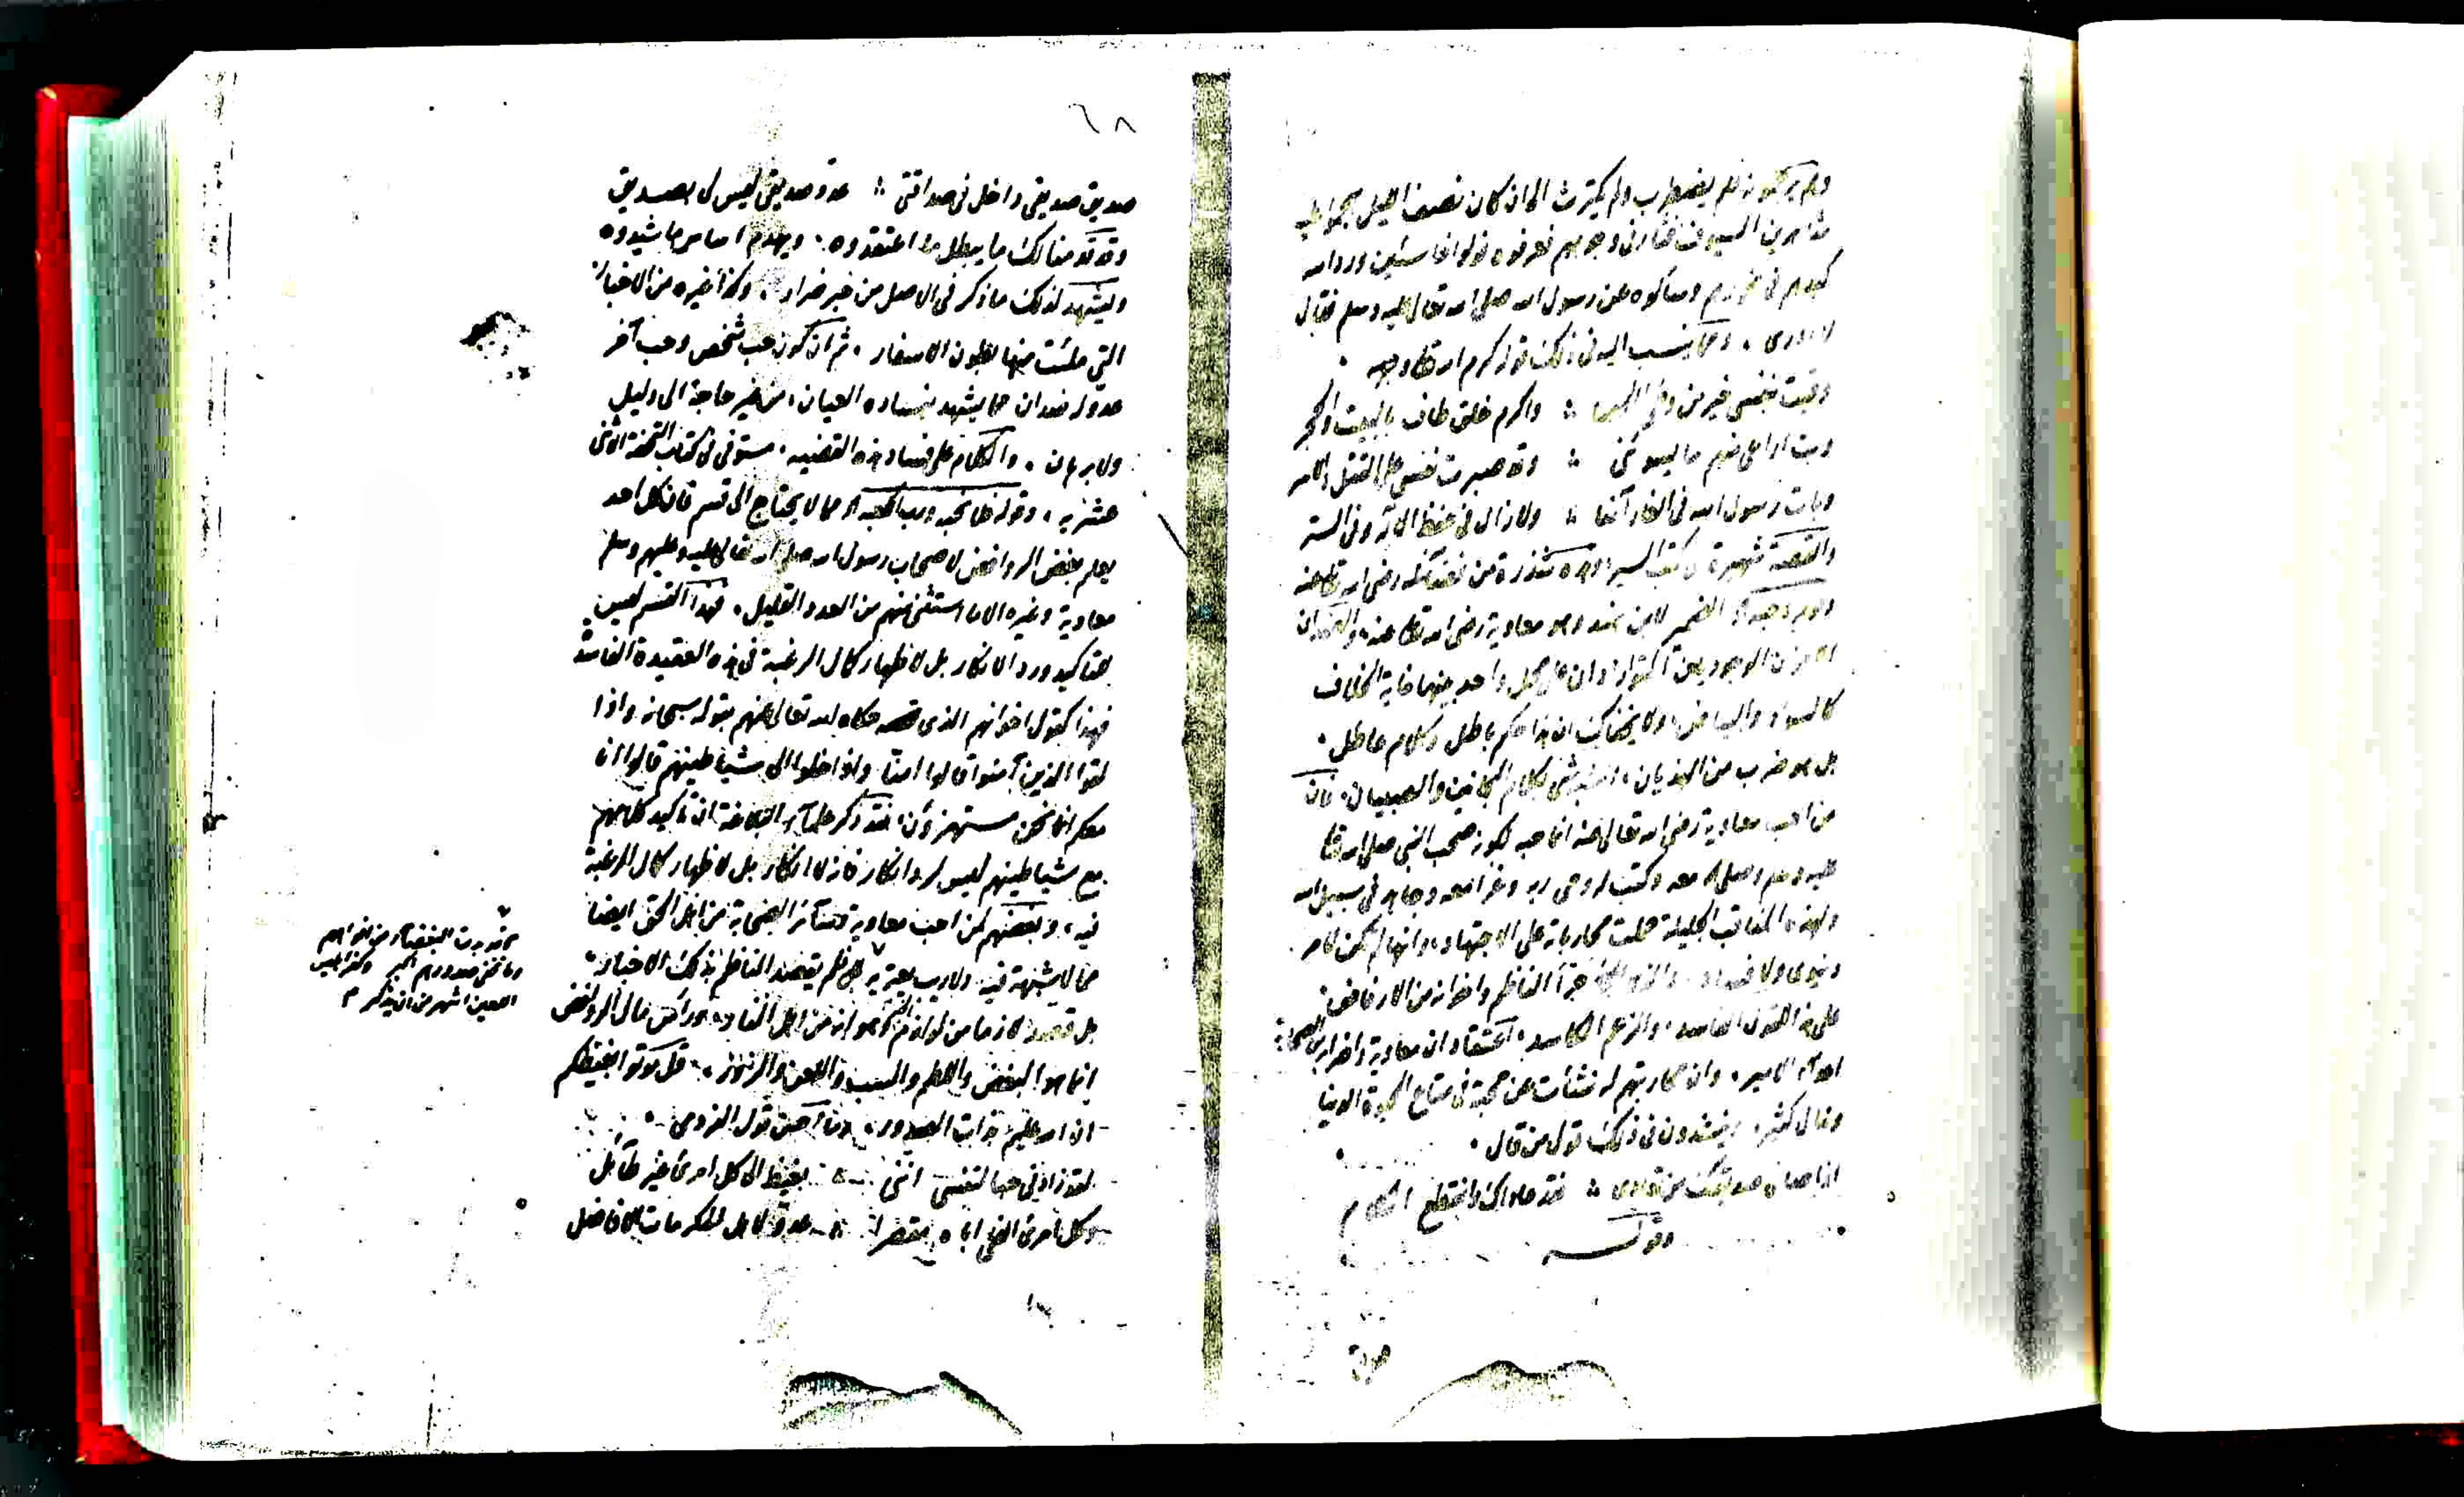 فلم يضطرب ولم يكترث الى ان كان نصف الليل هجموا عليه
شاهرين السيوف فثار في وجوههم فعرفوه فولوا خاسئين ورد الله
كيدهم في نحورهم وسألوه عن رسول الله صلى الله تعالى عليه وسلم فقال
لا ادري . ومما ينسب اليه في ذلك قوله كرم الله تعالى وجهه
وقيت بنفسي خير من وطئ الحصا واكرم خلق طاف بالبيت والحجر
وبت اراعي منهم ما يسوءني وقد صبرت نفسي على القتل والاسر
وبات رسول الله في الغار آمنا ولا زال في حفظ الاله وفي الستر
والقصة شهيرة في كتب السير وهذه شذرة من فضائله رضي الله تعالى عنه
الضمير لابن هند وهو معاوية رضي الله تعالى عنه والضدان
الامران الوجوديان على محل واحد بينهما غاية الخلاف
كالسواد والبياض ولا يخفاك ان هذا حكم باطل وكلام عاطل .
بل هو ضرب من الهذيان ، اشبه شيء بكلام المجانين والصبيان . فان
من احب معاوية رضي الله تعالى عنه انما احبه لكونه صحب النبي صلى الله تعالى
عليه وسلم وصلى معه وكتب له وحي ربه وغزا معه وجاهد في سبيل الله
ولهذه المناقب الجليلة حملت محارباته على الاجتهاد وانها لم تكن لامر
دنيوي ولا جرأ الناظم واخوانه من الارفاض
على هذا القول الفاسد ، والزعم الكاسد ، اعتقاد ان معاوية واضرابه من الصحابة
اعداء الامير . وان محاربتهم له نشأت عن محبة في متاع الحيوة الدنيا
وينشدون في ذلك قول من قال .
اذا صافى صديقك من تعادي فقد عاداك وانقطع الكلام
وقوله
صديق صديقي داخل في صداقتي عدو صديقي ليس لي بصديق
وقد قدمنا لك ما يبطل ما اعتقدوه . ويهدم اساس ما شيدوه
ويشهد لذلك ما ذكر في الاصل من خبر ضرار . وكذا غيره من الاخبار
التي ملئت منها بطون الاسفار . ثم ان كون حب شخص وحب آخر
عدو له ضدان مما يشهد بفساده العيان ، من غير حاجة الى دليل
ولا برهان . والكلام على فساد هذه القضيه . مستوفى في كتاب التحفة الاثنى
عشريه . وقوله مما لا يحتاج الى قسم فان كل احد
يعلم بغض الروافض لاصحاب رسول الله صلى الله تعالى عليه وعليهم وسلم
معاوية وغيره الا ما استثنى منهم من العدد القليل . فهذا القسم ليس
لتاكيد ورد الانكار بل لاظهار كمال الرغبة في هذه العقيدة الفاسدة
فهذا كقول اخوانهم الذي حكاه الله تعالى عنهم بقوله سبحانه واذا
لقوا الذين آمنوا قالوا امنا واذا خلوا الى شياطينهم قالوا انا
معكم انما نحن مستهزؤن ، فقد ذكر علماء البلاغة ان تاكيد كلامهم
مع شياطينهم ليس لرد انكار فانه لا انكار بل لاظهار كمال الرغبة
فيه ، وبغضهم لمن احب معاوية وسائر الصحابة من اهل الحق ايضا
مما لا شبهة فيه ولا ريب يعتريه فلم يقصد الناظم بذلك الاخبار
بل قصد لازما من لوازم وهو انه من اهل العناد ورأس مال الروافض
انما هو البغض واللطم والسب واللعن والزور . قل موتوا بغيظكم
ان الله عليم بذات الصدور . وما احسن قول
لقد زادني حبا لنفسي انني بغيض الى كل امرئ غير طائل
وكل امرئ الفى اباه مقصرا عدو لاهل المكرمات الافاضل
قد بدت البغضاء من افواههم
وما تخفي صدورهم اكبر وكفر ابليس
اللعين اشهر من ان يذكر